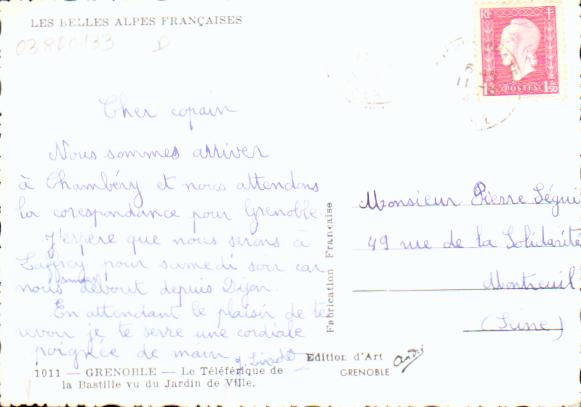 LES BELLES ALPES FRANÇAISES
RF
POSTES 1F50
Cher copain
Nous sommes arriver
à Chambéry et nous attendons
la corespondance pour Grenoble.
J'espère que nous serons à
pour samedi soir car
nous sommes debout depuis Dijon.
En attendant le plaisir de te
revoir je te serre une cordiale
poignée de main
Fabrication Française
Monsieur Pierre
49 rue de la Solidarité
Montreuil
(Seine)
Edition d'Art André
GRENOBLE
1011 — GRENOBLE — Le Téléférique de
la Bastille vu du Jardin de Ville.